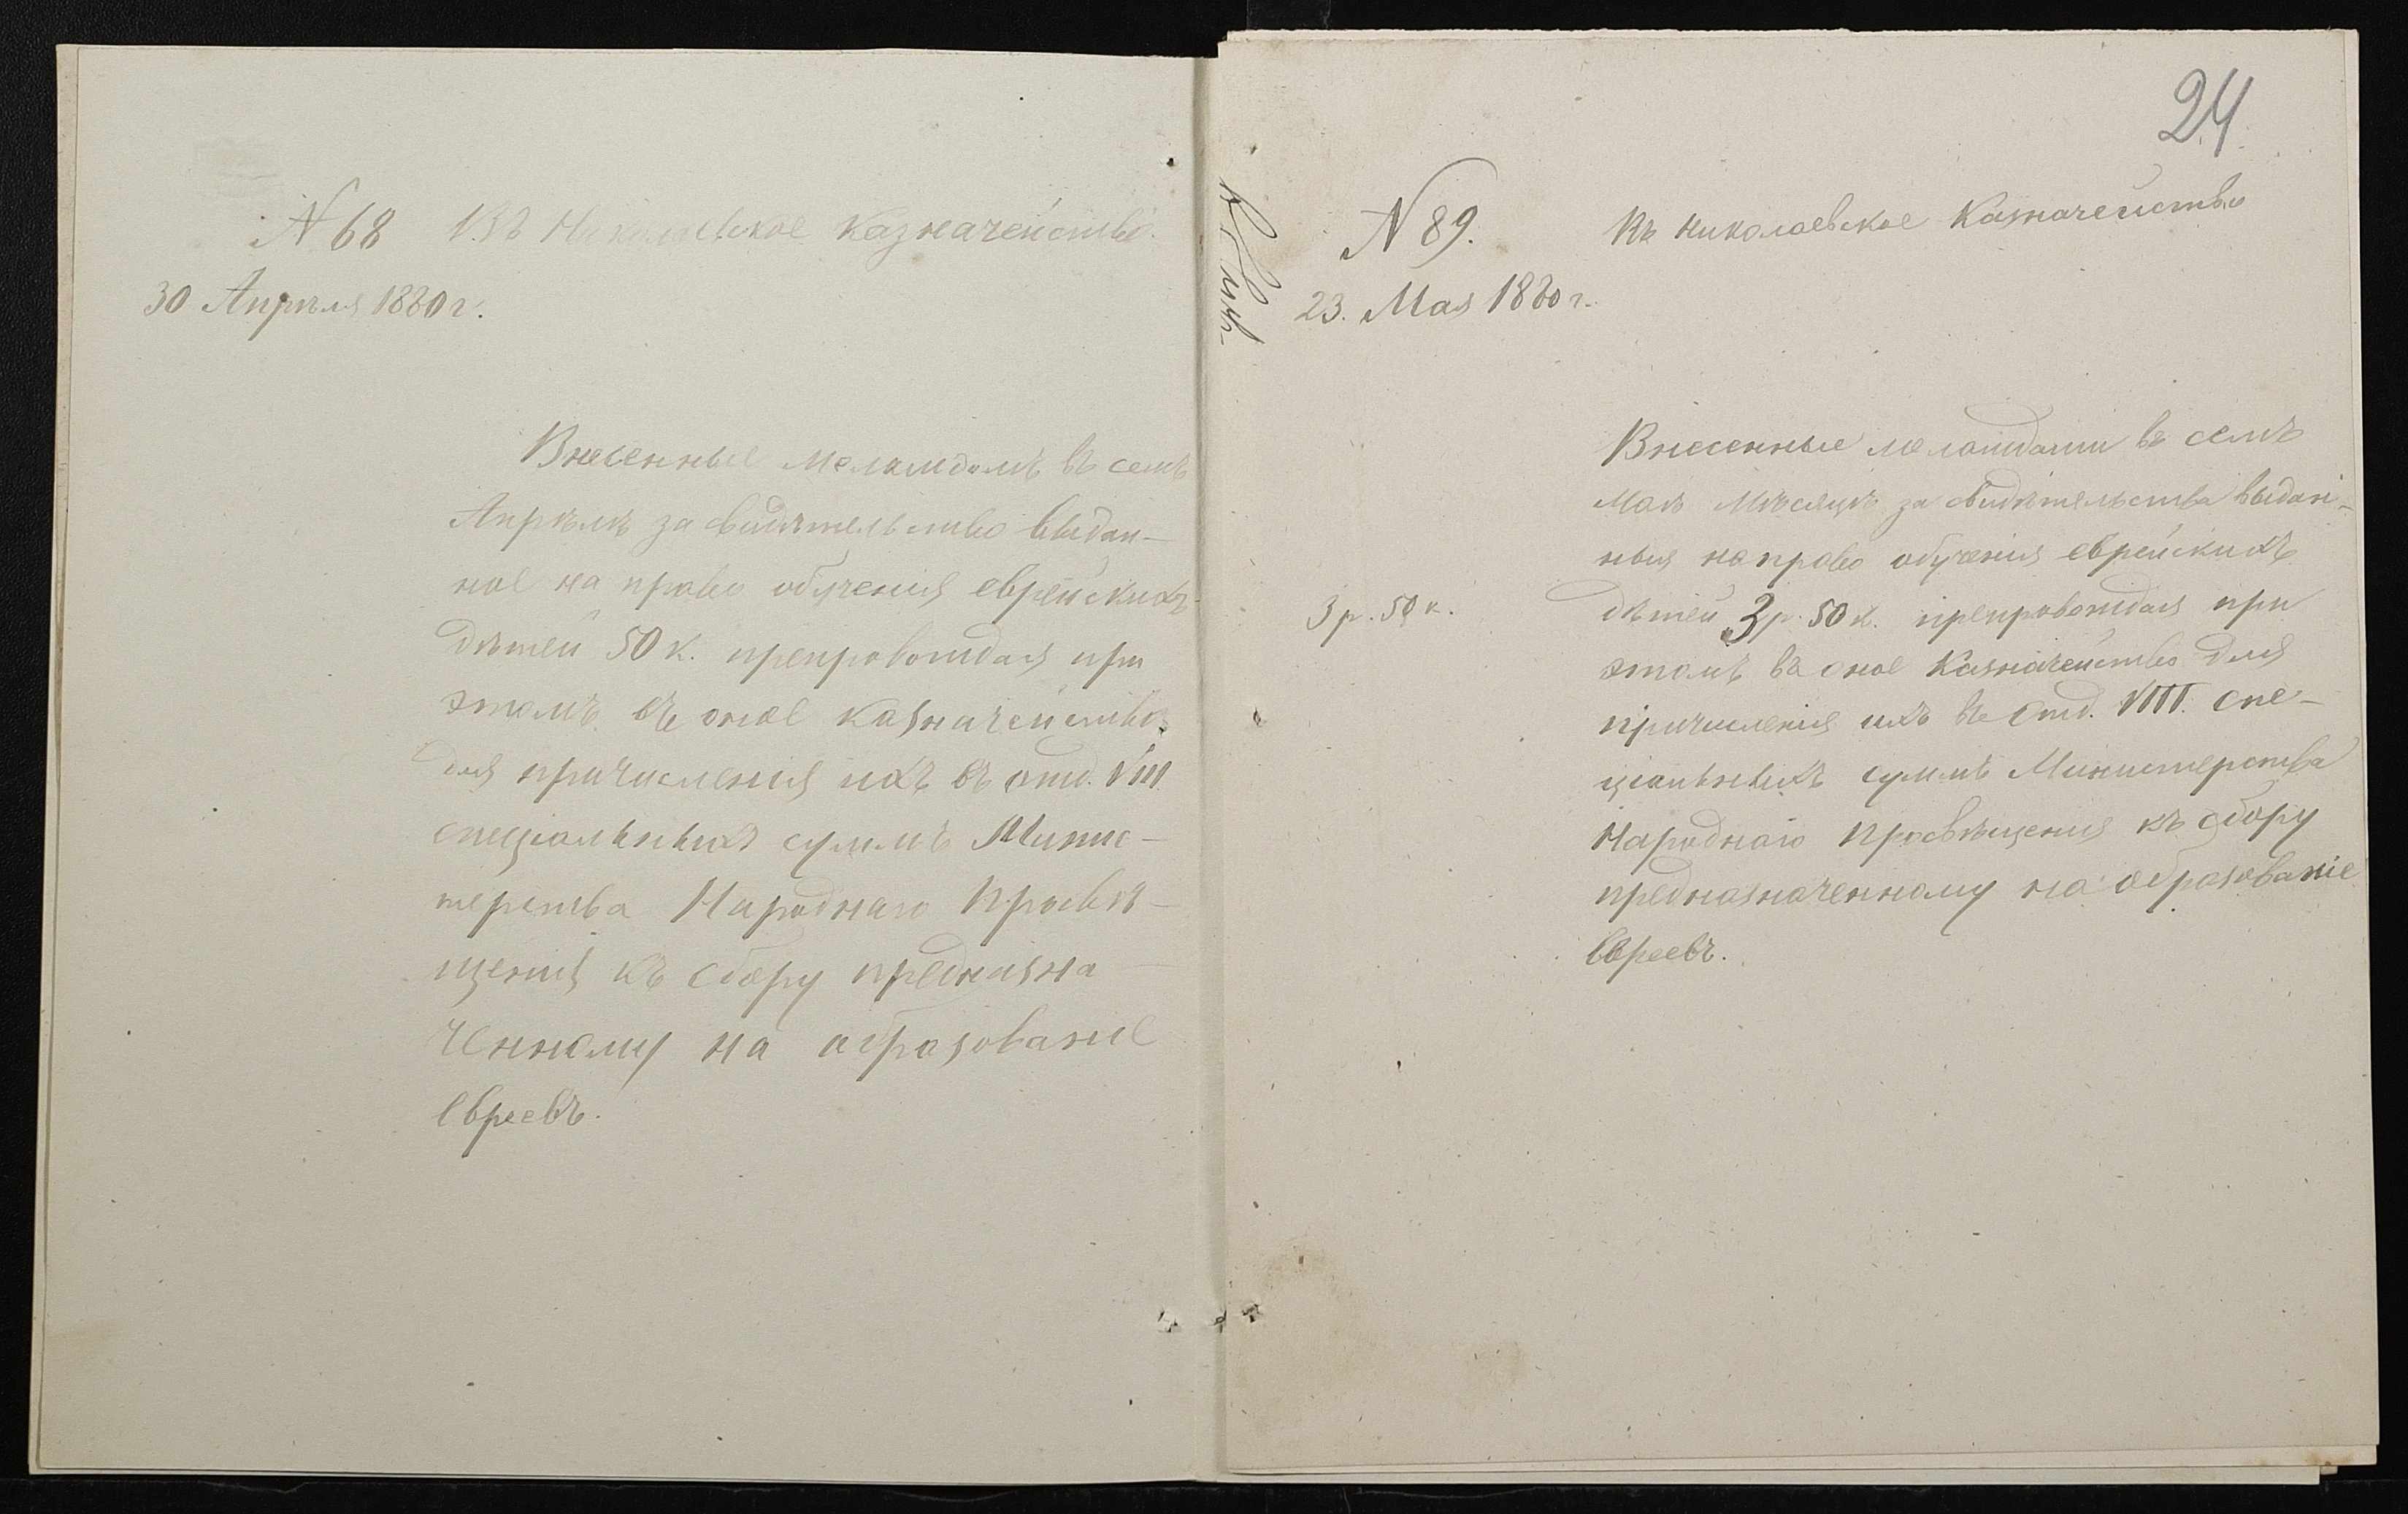 № 68 Въ Николаевское Казначейство.
30 Апрѣля 1880 г.
Внесенные меламдомъ въ семъ
Апрѣлѣ за свидѣтельство выдан-
ное на право обученія еврейскихъ
дѣтей 50 к. препровождая при
этомъ въ оное казначейство
для причисленія ихъ въ отд. VIII
спеціальныхъ суммъ Минис-
терства Народнаго Просвѣ-
щенія къ сбору предназна
ченному на образованіе
Евреевъ.
24
№ 89. Въ Николаевское Казначейство
23. Мая 1880 г.
Внесенные меламдами въ семъ
Маѣ мѣсяцѣ за свидѣтельства выдан-
ныя на право обученія еврейскихъ
3 р. 50 к. дѣтей 3 р. 50 к. препровождая при
этомъ въ оное Казначейство для
причисленія ихъ въ отд. VIII. спе-
ціальныхъ суммъ Министерства
Народнаго Просвѣщенія къ сбору
предназначенному на образованіе
Евреевъ.